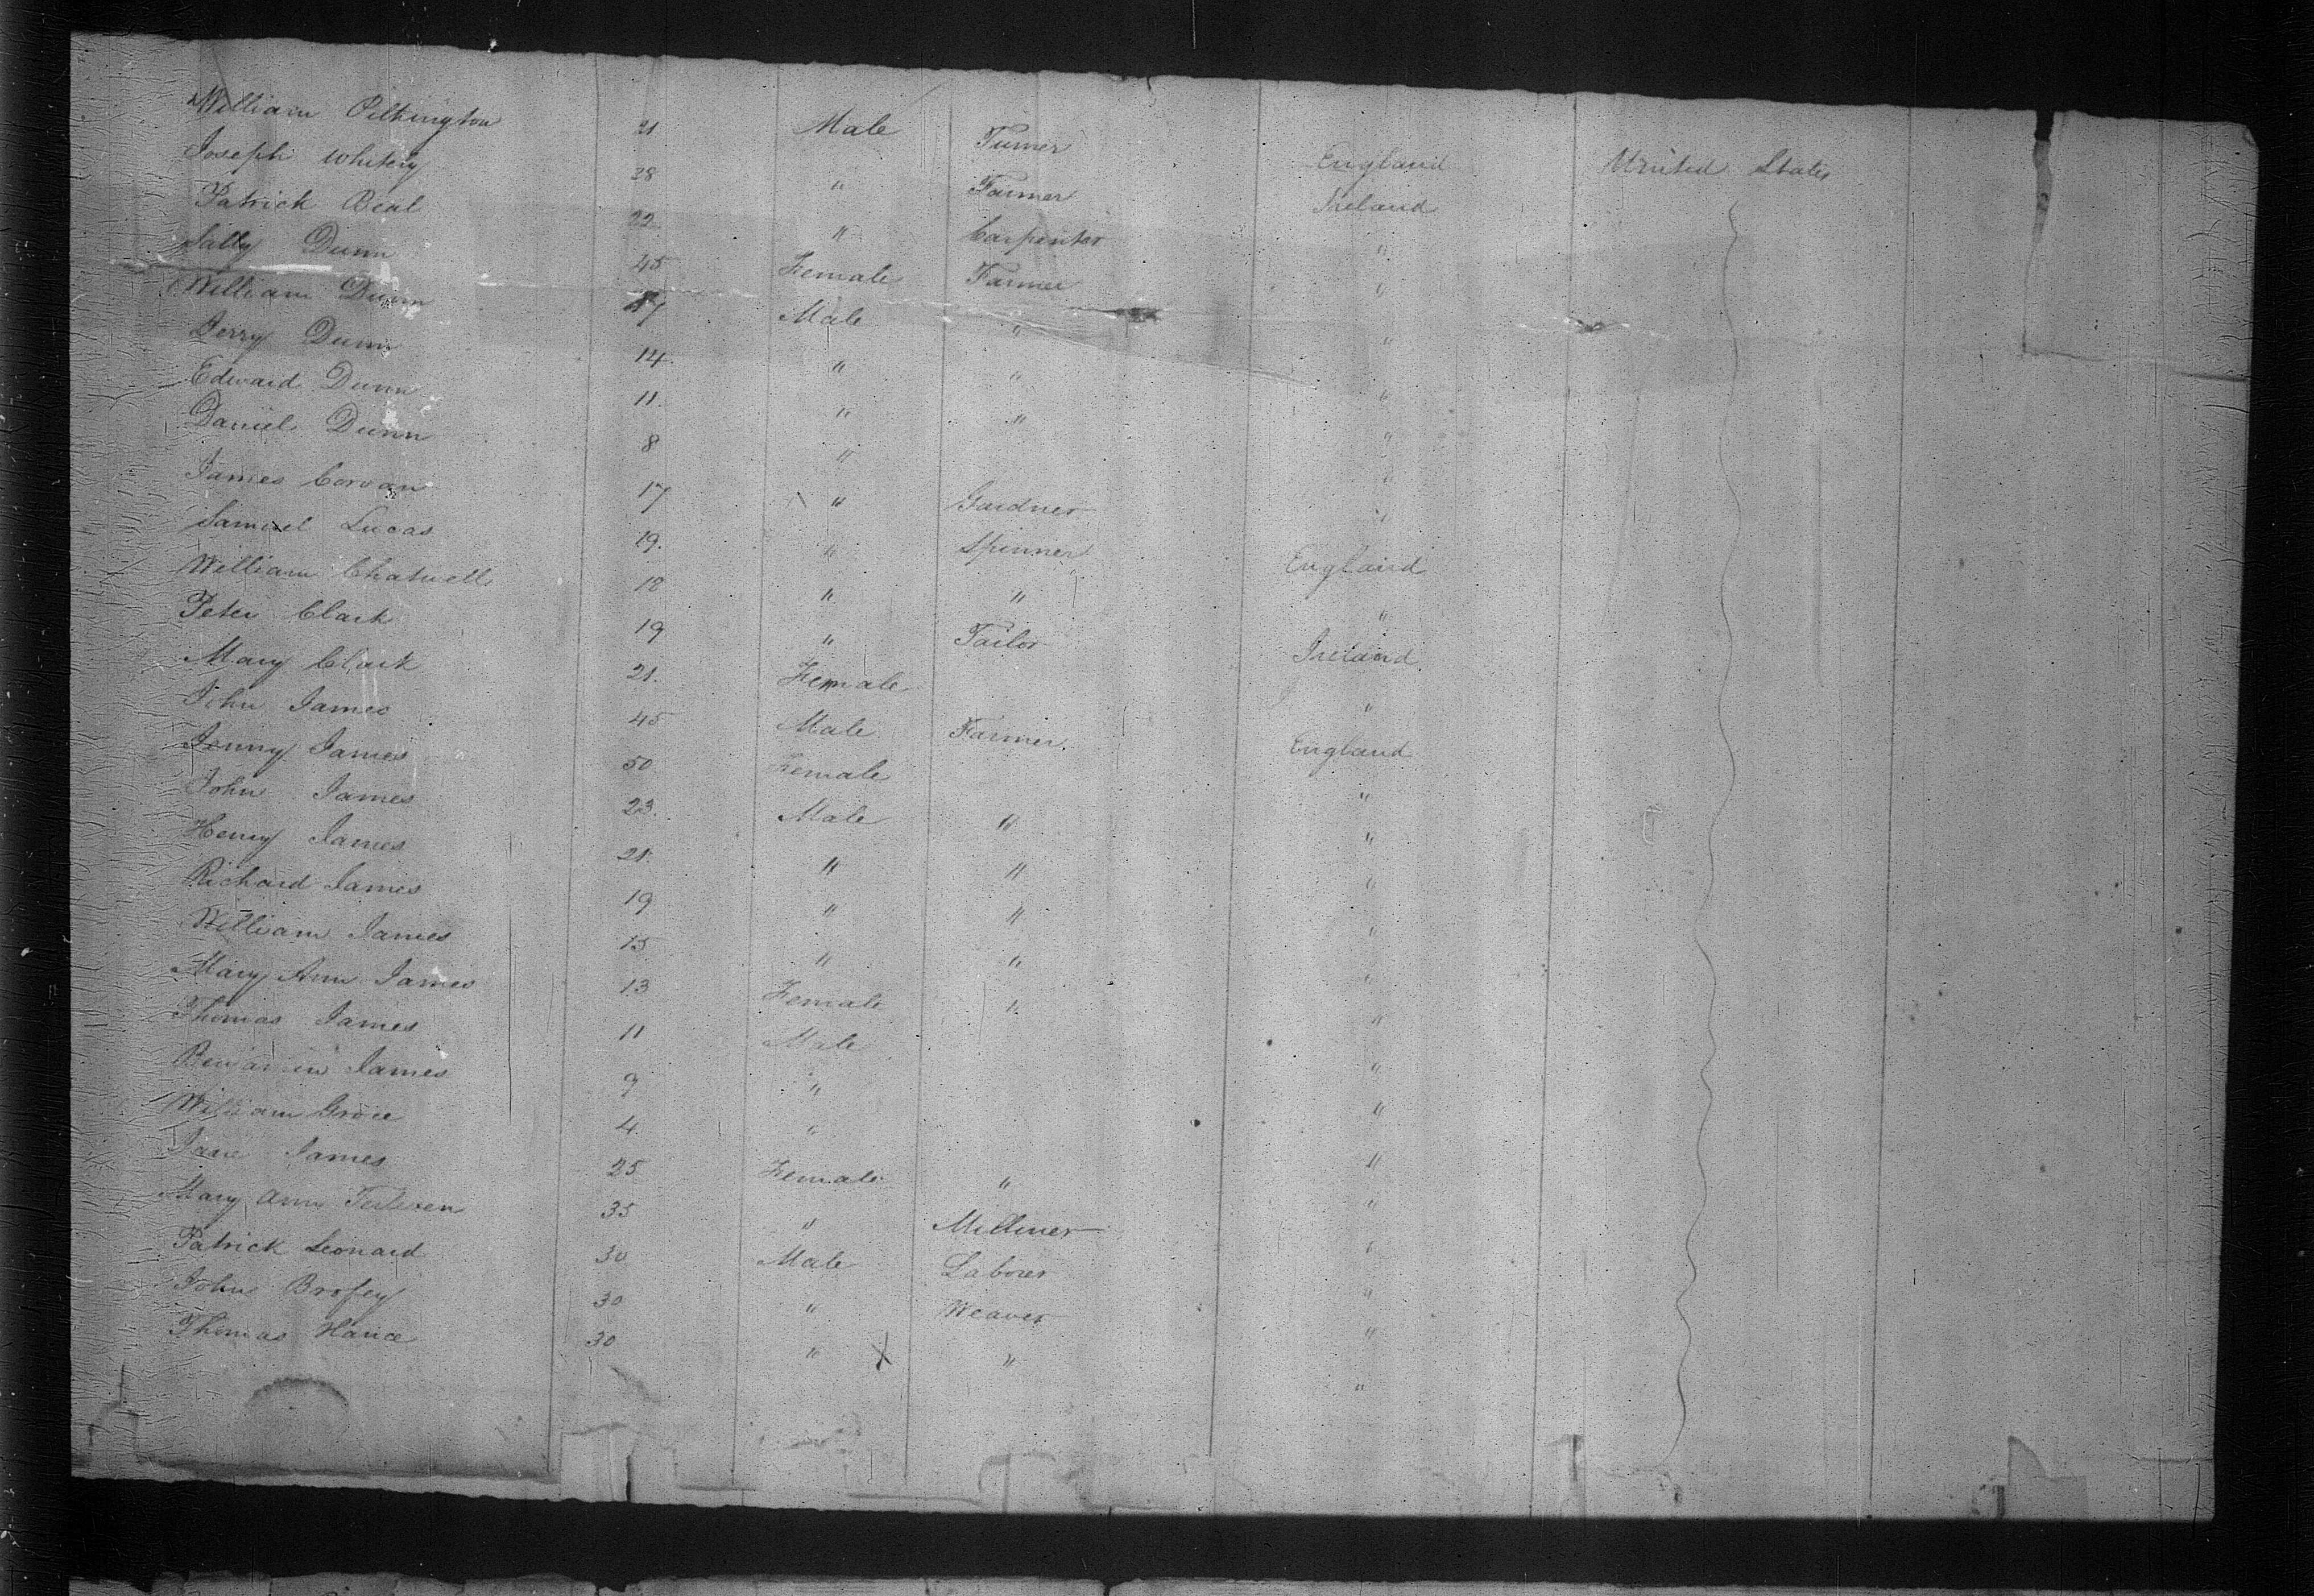 William Pilkington 21 Male Turner England United States
Joseph Whitely 28 " Farmer Ireland
Patrick Beal 22 " Carpenter "
Sally Dunn 45 Female Farmer "
William Dunn 17 Male " "
Jerry Dunn 14 " " "
Edward Dunn 11 " " "
Daniel Dunn 8 " "
James Corvan 17 " Gardner "
Samuel Lucas 19 " Spinner England
William Chatwell 18 " " "
Peter Clark 19 " Tailor Ireland
Mary Clark 21 Female "
John James 45 Male Farmer England
Jenny James 50 Female "
John James 23 Male " "
Henry James 21 " " "
Richard James 19 " " "
William James 15 " " "
Mary Ann James 13 Female " "
Thomas James 11 Male "
Benjamin James 9 " "
William Groce 4 " "
Jane James 25 Female " "
Mary Ann 35 " Milliner "
Patrick Leonard 30 Male Laborer "
John Brofey 30 " Weaver "
Thomas Hance 30 " X " "